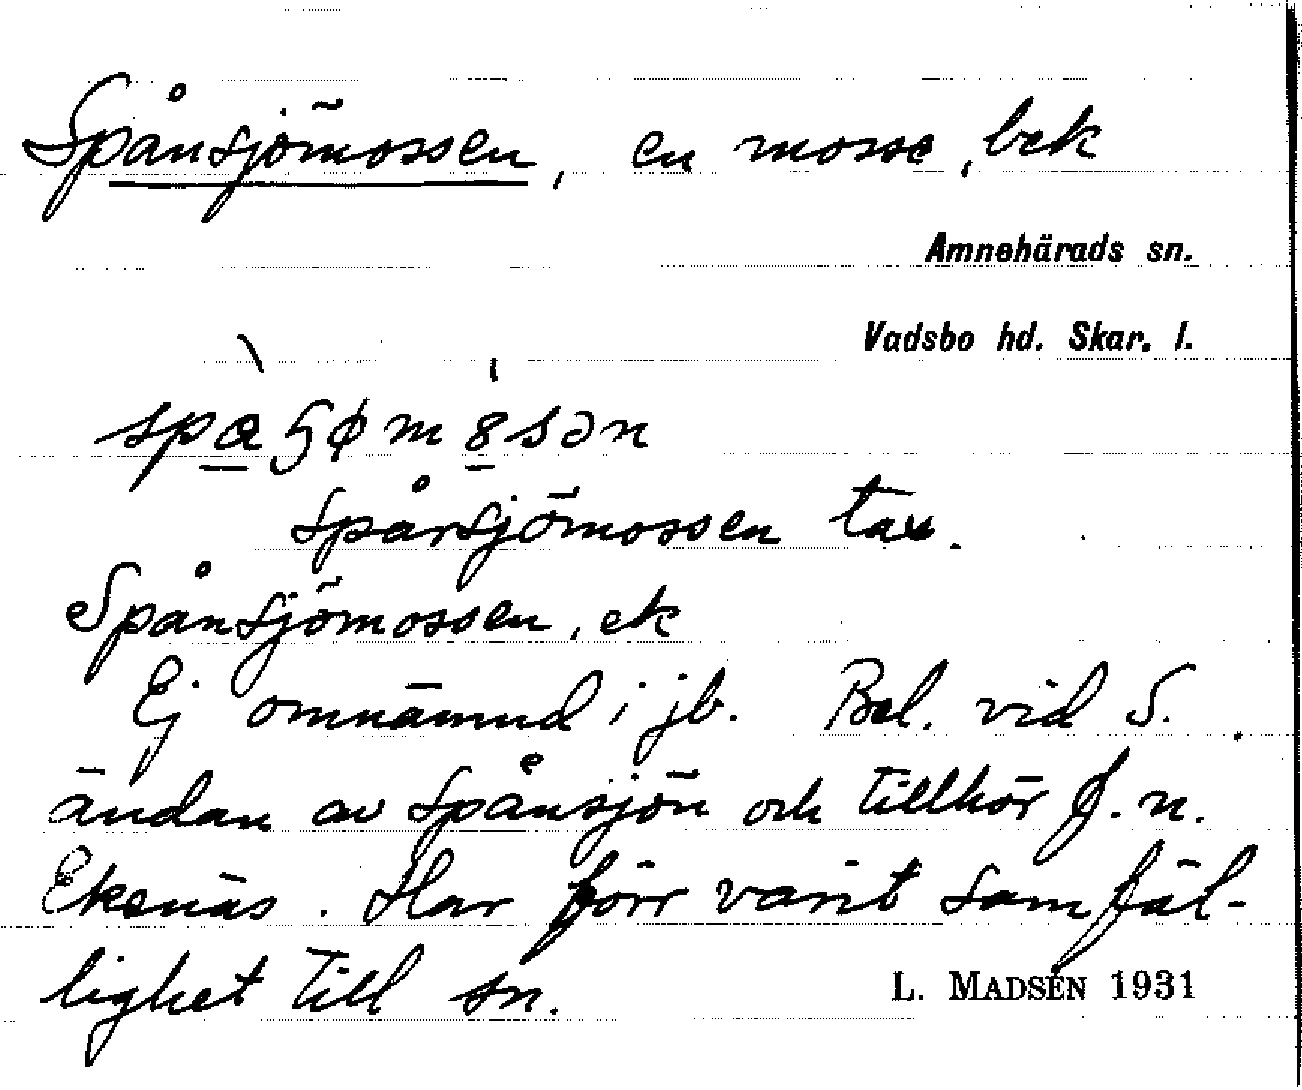 Spånsjömossen, en mosse, bek
Amnehärads sn.
Vadsbo hd. Skar. l.
Spårsjömossen tax.
Spånsjömossen, ek
Ej omnämnd i jb. Bel. vid S.
ändan av Spånsjön och tillhör f. n.
Ekenäs. Har förr varit samfäl-
lighet till sn.
L. MADSÉN 1931